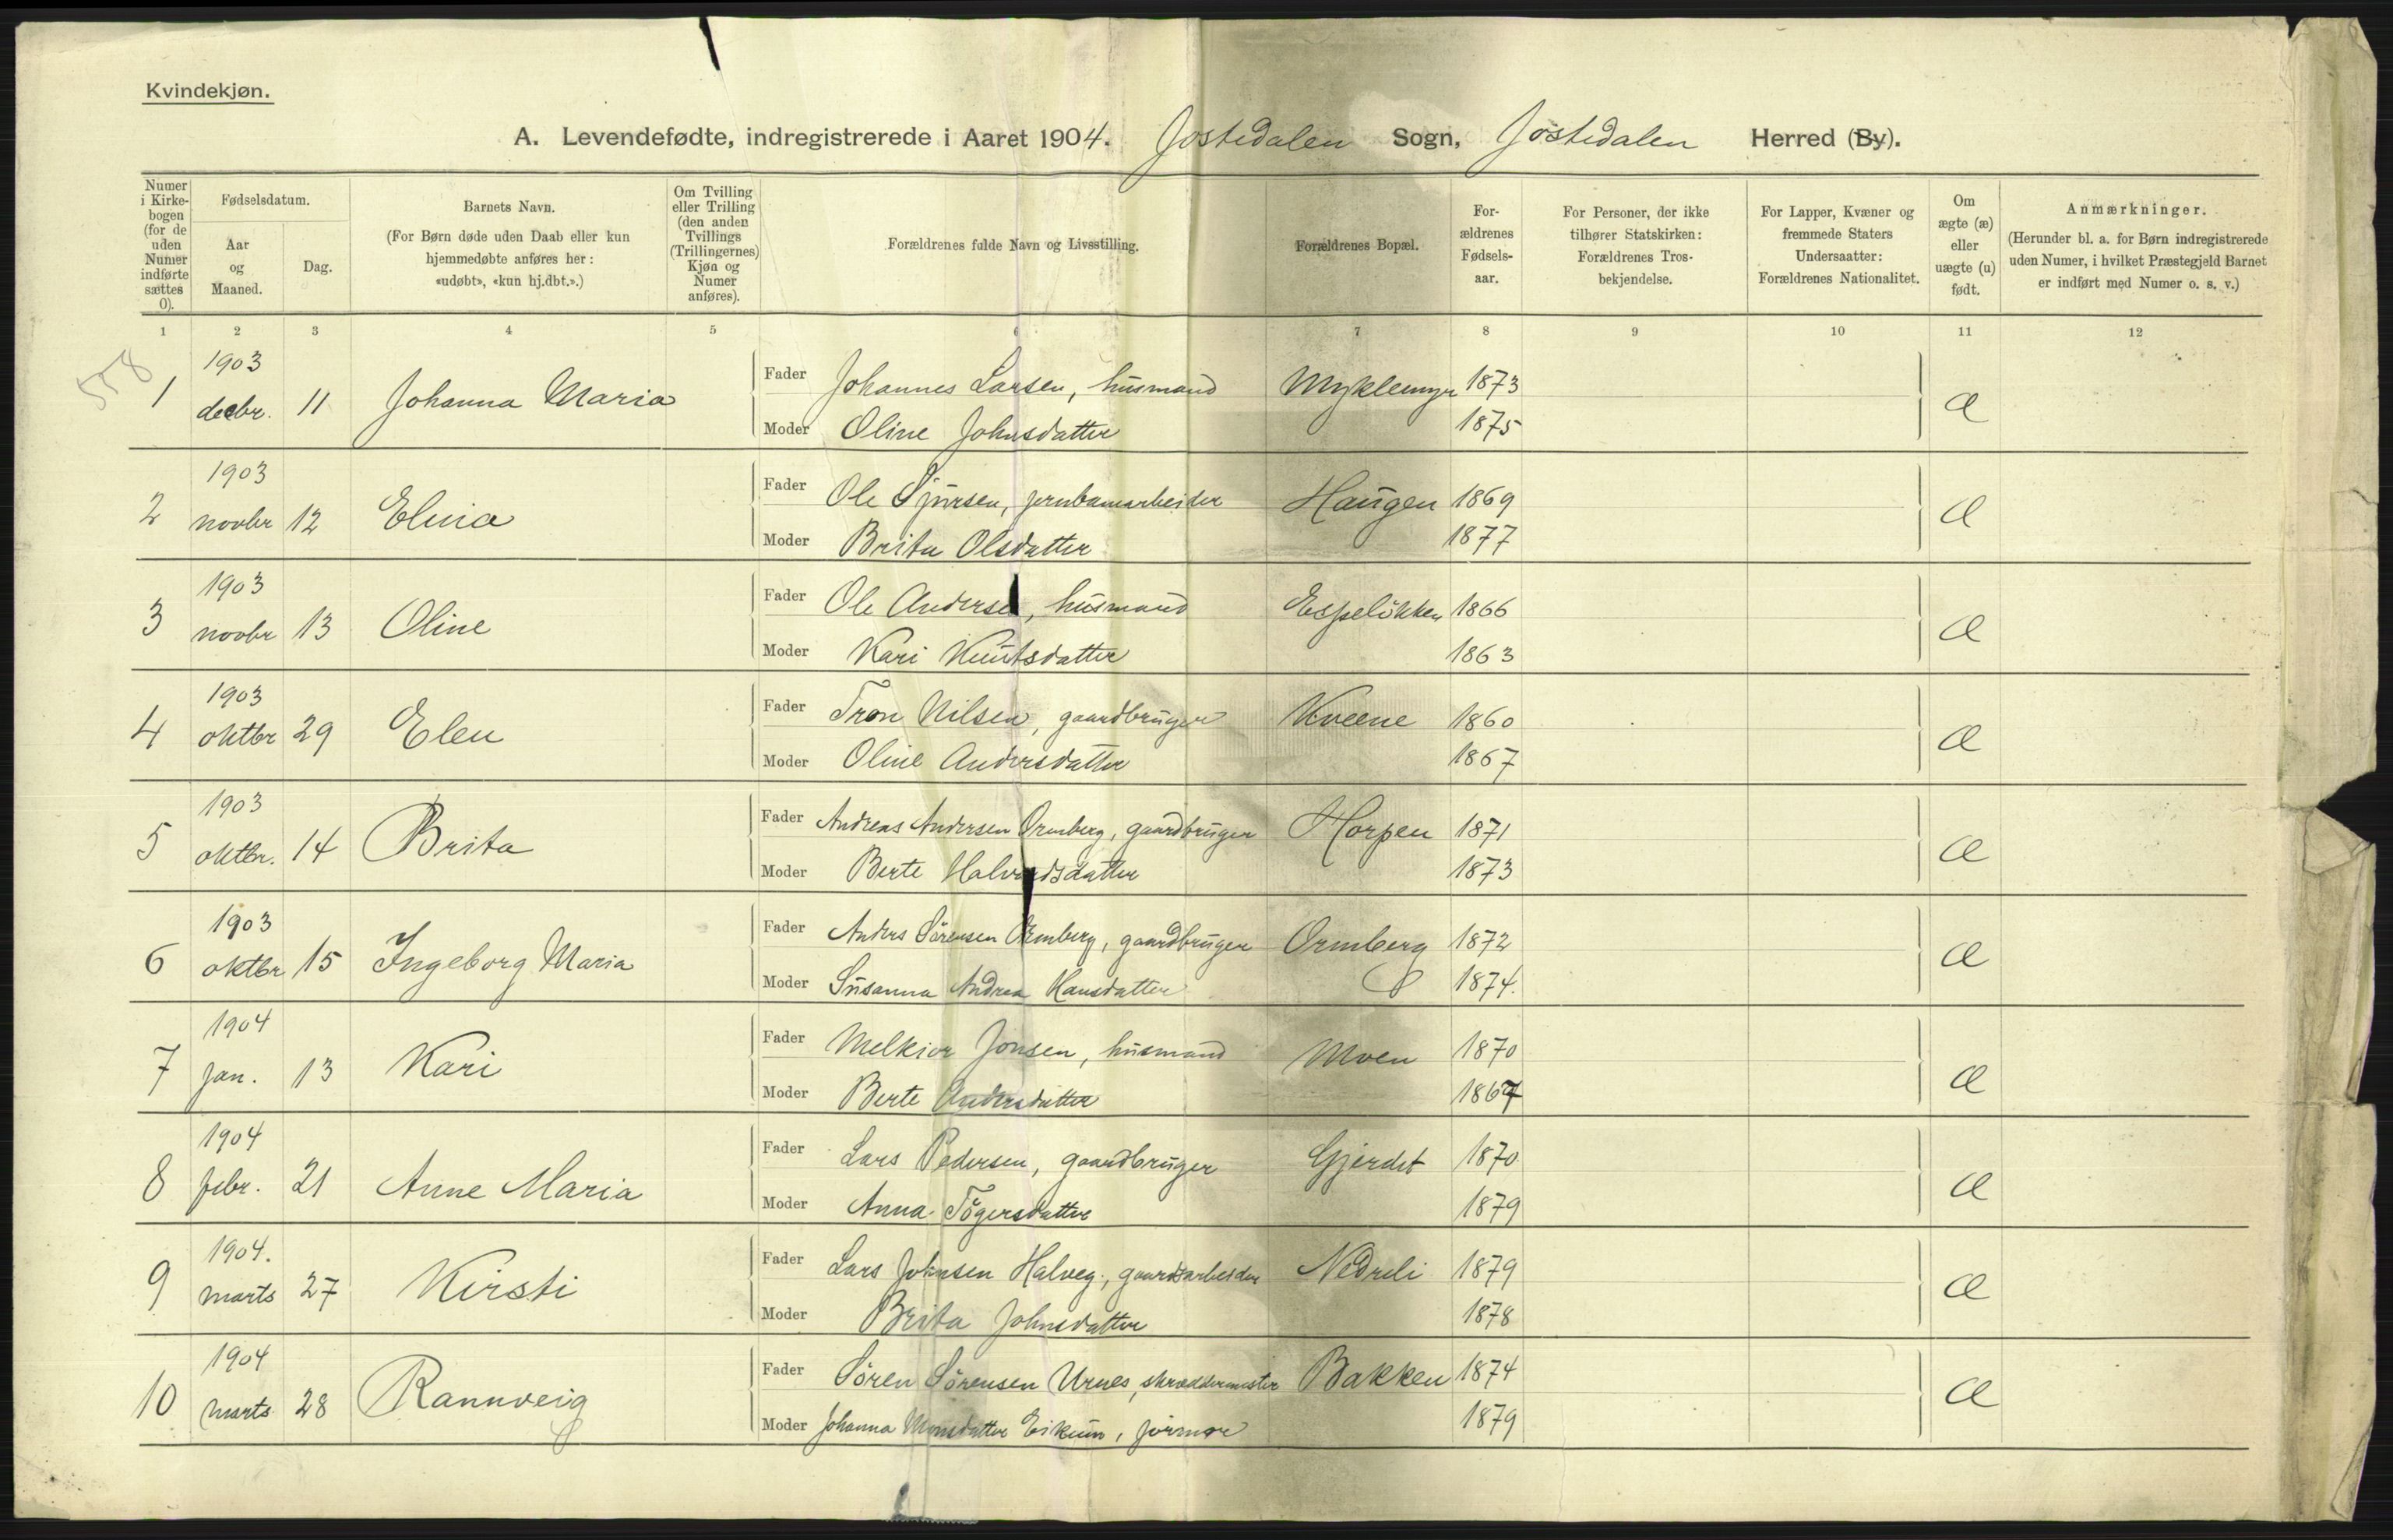 Kvindekjøn.
A. Levendefødte, indregistrerede i Aaret 1904. Jostedalen Sogn, Jostedalen Herred (By).
Numer i Kirkebogen (for de uden Numer indførte sættes 0).
Fødselsdatum.
Aar og Maaned.
Dag.
Barnets Navn.
(For Børn døde uden Daab eller kun hjemmedøbte anføres her: «udøbt», «kun hj.dbt.».)
Om Tvilling eller Trilling (den anden Tvillings (Trillingernes) Kjøn og Numer anføres).
Forældrenes fulde Navn og Livsstilling.
Forældrenes Bopæl.
Forældrenes Fødselsaar.
For Personer, der ikke tilhører Statskirken: Forældrenes Trosbekjendelse.
For Lapper, Kvæner og fremmede Staters Undersaatter: Forældrenes Nationalitet.
Om ægte (æ) eller uægte (u) født.
Anmærkninger.
(Herunder bl. a. for Børn indregistrerede uden Numer, i hvilket Præstegjeld Barnet er indført med Numer o. s. v.)
1 2 3 4 5 6 7 8 9 10 11 12
558
1 1903 decbr. 11 Johanna Maria Fader Johannes Larsen, husmand Myklemyr 1873 æ
Moder Oline Johnsdatter 1875
2 1903 novbr 12 Elina Fader Ole Sjursen, jernbanarbeider Haugen 1869 æ
Moder Brita Olsdatter 1877
3 1903 novbr 13 Oline Fader Ole Anderse, husmand Espeløkken 1866 æ
Moder Kari Knutsdatter 1863
4 1903 oktbr 29 Elen Fader Tron Nilsen, gaardbruger Kveene 1860 æ
Moder Oline Andersdatter 1867
5 1903 oktbr. 14 Brita Fader Andreas Andersen Ormberg, gaardbruger Horpen 1871 æ
Moder Berte Halvardsdatter 1873
6 1903 oktbr 15 Ingeborg Maria Fader Anders Sørensen Ormberg, gaardbruger Ormberg 1872 æ
Moder Susanna Andrea Hansdatter 1874.
7 1904 jan. 13 Kari Fader Melkior Jonsen, husmand Moen 1870 æ
Moder Berte Andersdatter 1867
8 1904 febr. 21 Anne Maria Fader Lars Pedersen, gaardbruger Gjerdet 1870 æ
Moder Anna Tøgersdatter 1879
9 1904. marts 27 Kirsti Fader Lars Johnsen Halveg., gaardsarbeider Nedreli 1879 æ
Moder Brita Johnsdatter 1878
10 1904 marts 28 Rannveig Fader Søren Sørensen Urnes, skræddermester Bakken 1874 æ
Moder Johanna Monsdatter Eikum, jormor 1879